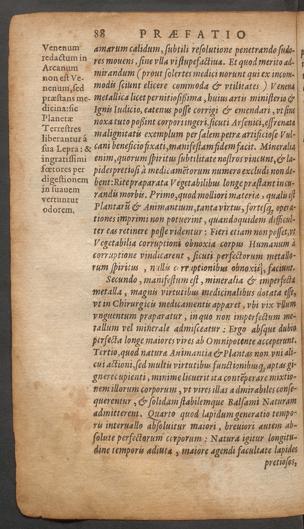 88 PRÆFATIO
Venenum
redactum in
Arcanum
non est Ve-
nenum, sed
præstans me-
dicina: sic
Planetæ
Terrestres
liberantur à
sua Lepra: &
ingratissimi
fœtores per
digestionem
in suauem
vertuntur
odorem.
amarum calidum, subtili resolutione penetrando sudo-
res mouens, sine vlla vi stupefactiua. Et quod merito ad-
mirandum (prout solertes medici norunt qui ex incom-
modis sciunt elicere commoda & vtilitates) Venena
metallica licet perniciosissima, huius artis ministerio &
Ignis Iudicio, eatenus posse corrigi & emendari, vt sine
noxa tuto possint corpori ingeri, sicuti Arsenici, effrenatæ
malignitatis exemplum per salem petræ artificiose Vul-
cani beneficio fixati, manifestam fidem facit. Mineralia
enim, quorum spiritus subtilitate nostros vincunt, & la-
pides pretiosi à medicamẽtorum numero excludi non de-
bent: Rite præparata Vegetabilibus longe præstant in cu-
randis morbis. Primo, quod molliori materia: qualis est
Plantarũ & Animantium, tanta virtus, fortesq, opera-
tiones imprimi non potuerint, quandoquidem difficul-
ter eas retinere posse videntur: Fieri etiam non posset, vt
Vegetabilia corruptioni obnoxia corpus Humanum à
corruptione vindicarent, sicuti perfectorum metallo-
rum spiritus, nullis corruptionibus obnoxij, faciunt.
Secundo, manifestum est, mineralia & imperfecta
metalla, magnis virtutibus medicinalibus dotata esse,
vt in Chirurgicis medicamentis apparet, vbi vix vllum
vnguentum præparatur, in quo non imperfectum me-
tallum vel minerale admisceatur: Ergo absque dubio
perfecta longe maiores vires ab Omnipotente acceperunt.
Tertio, quod natura Animantia & Plantas non vni ali-
cui actioni, sed multis virtutibus functionibusq, aptas gi-
gnere cupienti, minime licuerit ita contẽperare mixtio-
nem illorum corporum, vt vires illas admirabiles conse-
querentur, & solidam stabilemque Balsami Naturam
admitterent. Quarto quod lapidum generatio tempo-
ris interuallo absoluitur maiori, breuiori autem ab-
solute perfectorum corporum: Natura igitur longitu-
dine temporis adiuta, maiore agendi facultate lapides
pretiosos,